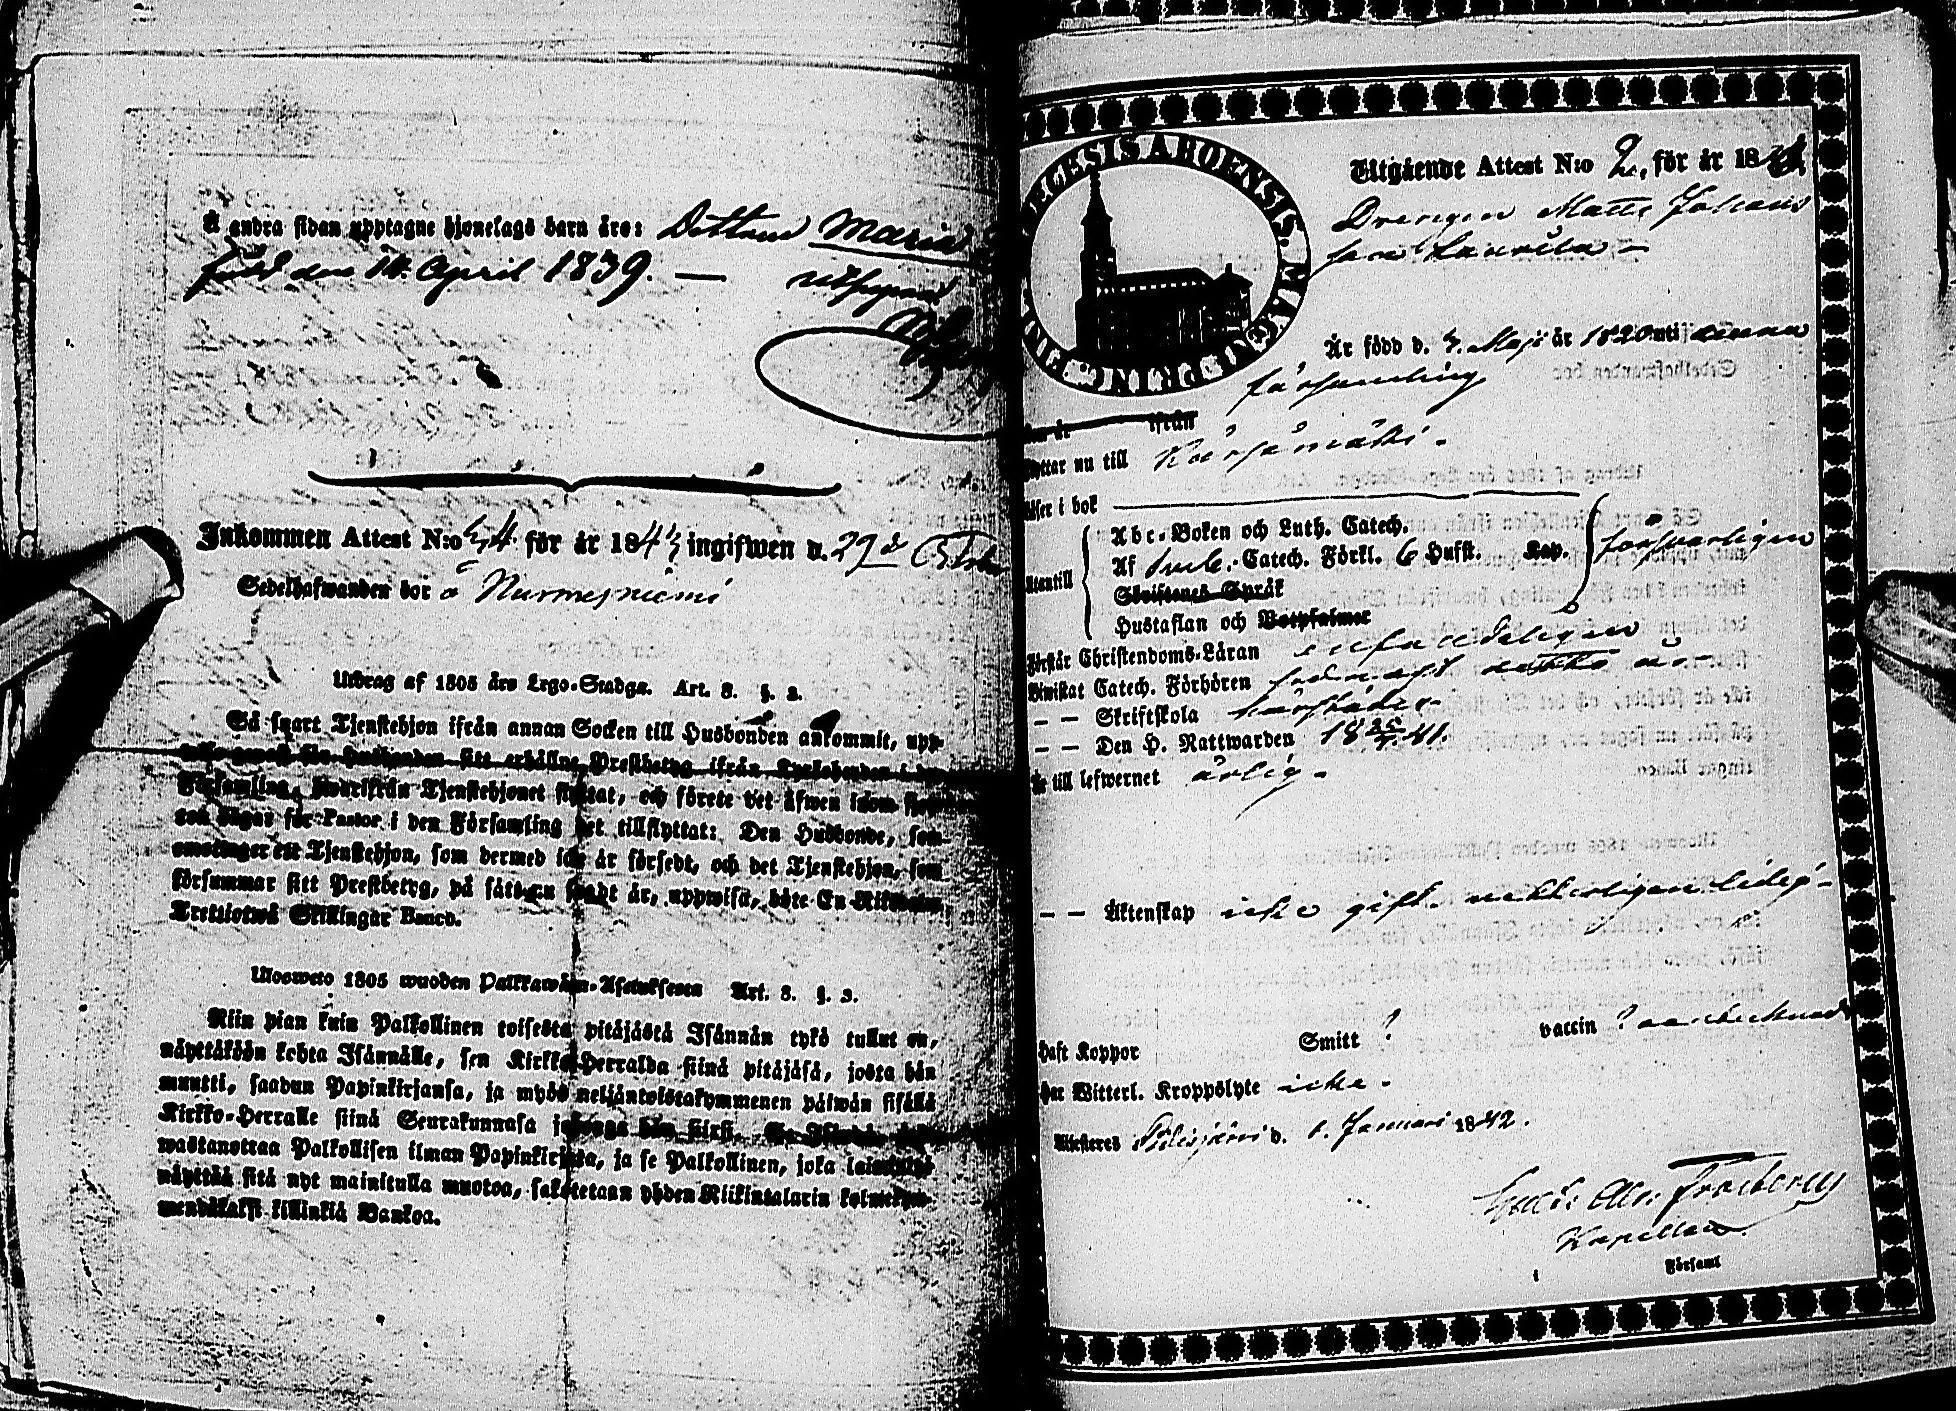 Å andra sidan upptagne hjonelags barn äro: Dottern Maria
född den 14 April 1839. —
Inkommen Attest N:o 44 för år 184 ingifwen d. 29
Sedelhafwanden bor å Nurmesniemi
Utdrag af 1805 års Lego-Stadga. Art. 8. §. 2.
Så snart Tjenstehjon ifrån annan Socken till Husbonden ankommit, upp-
sitt erhållne Prestbetyg ifrån
Församling, hwarifrån Tjenstehjonet flyttat, och förete det äfwen inom
ton dagar för Pastor i den Församling det tillflyttat: Den Husbonde, som
emottager ett Tjenstehjon, som dermed icke är försedt, och det Tjenstehjon, som
försummar sitt Prestbetyg, på sätt nu sagdt är, uppwisa, böte En Riksdaler
Trettiotwå Skillingar Banco.
Ulosweto 1805 wuoden Palkkawäen-Asetuksesta Art. 8. §. 2.
Niin pian kuin Palkollinen toisesta pitäjästä Isännän tykö tullut on,
näyttäköön kohta Isännälle, sen Kirkko-Herralda siinä pitäjäsä, josta hän
muutti, saadun Papinkirjansa, ja myös neljäntoistakymmenen päiwän sisällä
Kirkko-Herralle siinä Seurakunnasa johonga hän siirsi.
wastanottaa Palkollisen ilman Papinkirjata, ja se Palkollinen, joka
näyttää sitä nyt mainitulla muotoa, sakotetaan yhden Riikintalarin kolmekym-
mendäkaksi killinkiä Bankoa.
DIOECESIS ABOENSIS. MAGNI PRINC.
Utgående Attest N:o 2. för år 18
Drengen Matts Johans
son Laurila —
Är född d. 4. Maji år 1820 uti denna
församling
ifrån
flyttar nu till Kärsämäki.
Läser i bok
Abc-Boken och Luth. Catech.
Utantill Af Catech. Förkl. 6 Hufst. Kap. försvarligen
Söfstenes Språk
Hustaflan och Botpsalmer
Förstår Christendoms-Läran enfaldeligen
Biwistat Catech. Förhören
— — Skriftskola härstädes
— — Den H. Nattwarden 18 41.
Är till lefwernet ärlig.
— — Äktenskap icke gift.
Haft Koppor Smitt ? vaccin ?
Har Witterl. Kroppslyte icke.
Attesteres d. 1. Januari 1842.
Kapellan
i Församl